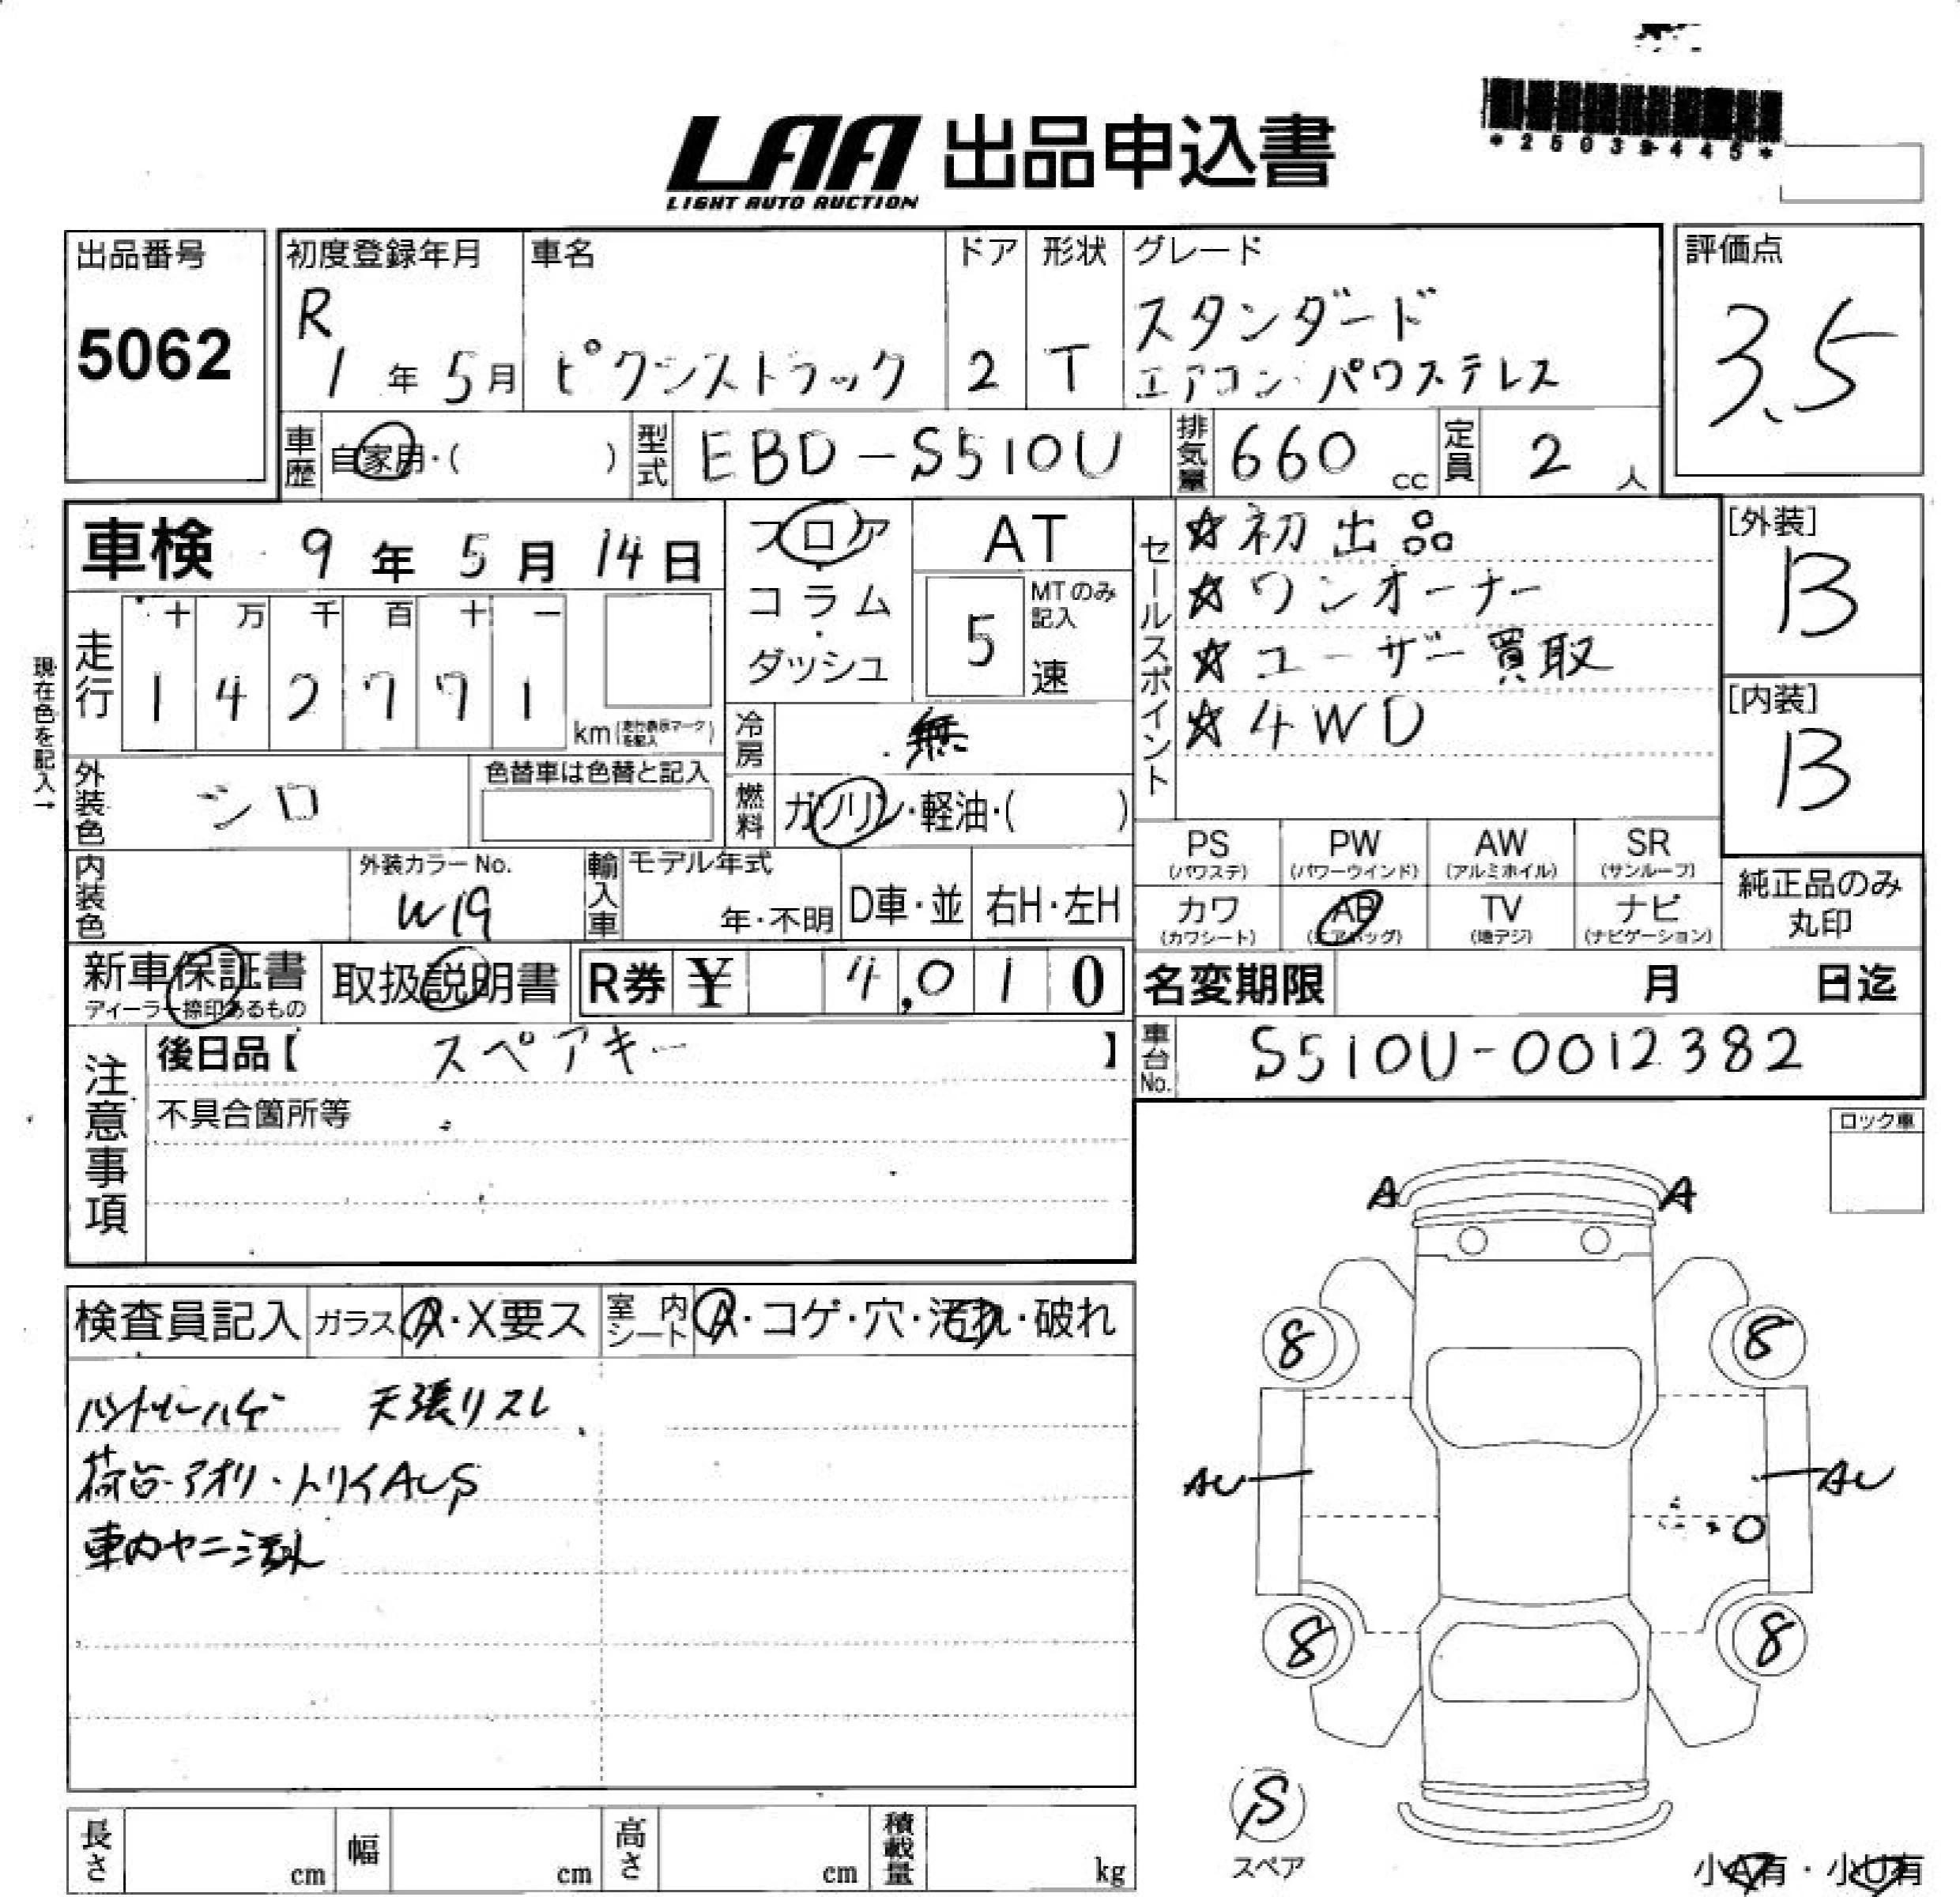 LAA 出品申込書
LIGHT AUTO AUCTION
出品番号
5062
初度登録年月
R
1 年 5 月
車名
ピクシストラック
ドア
2
形状
T
グレード
スタンダード
エアコン・パワステレス
評価点
3.5
車歴
自家用・( )
型式
EBD-S510U
排気量
660 cc
定員
2 人
車検 9 年 5 月 14 日
フロア
・
コラム
・
ダッシュ
AT
5
MTのみ
記入
速
セールスポイント
☆初出品
☆ワンオーナー
☆ユーザー買取
☆4WD
[外装]
B
[内装]
B
現在色を記入→
走行
十 万 千 百 十 一
1 4 2 7 7 1
km (走行表示マークを記入)
冷房
無
燃料
ガソリン・軽油・( )
外装色
シロ
色替車は色替と記入
内装色
外装カラーNo.
W19
輸入車
モデル年式
年・不明
D車・並
右H・左H
PS
(パワステ)
PW
(パワーウインド)
AW
(アルミホイル)
SR
(サンルーフ)
カワ
(カワシート)
AB
(エアバッグ)
TV
(地デジ)
ナビ
(ナビゲーション)
純正品のみ
丸印
新車保証書
ディーラー捺印あるもの
取扱説明書
R券 ¥ 4,010
名変期限 月 日迄
注意事項
後日品【 スペアキー 】
不具合箇所等
車台No.
S510U-0012382
ロック車
検査員記入
ガラス
A・X要ス
室内シート
A・コゲ・穴・汚れ・破れ
ハゲ 天張リスレ
荷台・アオリ・トリイAUS
車内ヤニ汚れ
A A
8 8
AU AU
8 8
S
スペア
小A有・小U有
長さ cm
幅 cm
高さ cm
積載量 kg